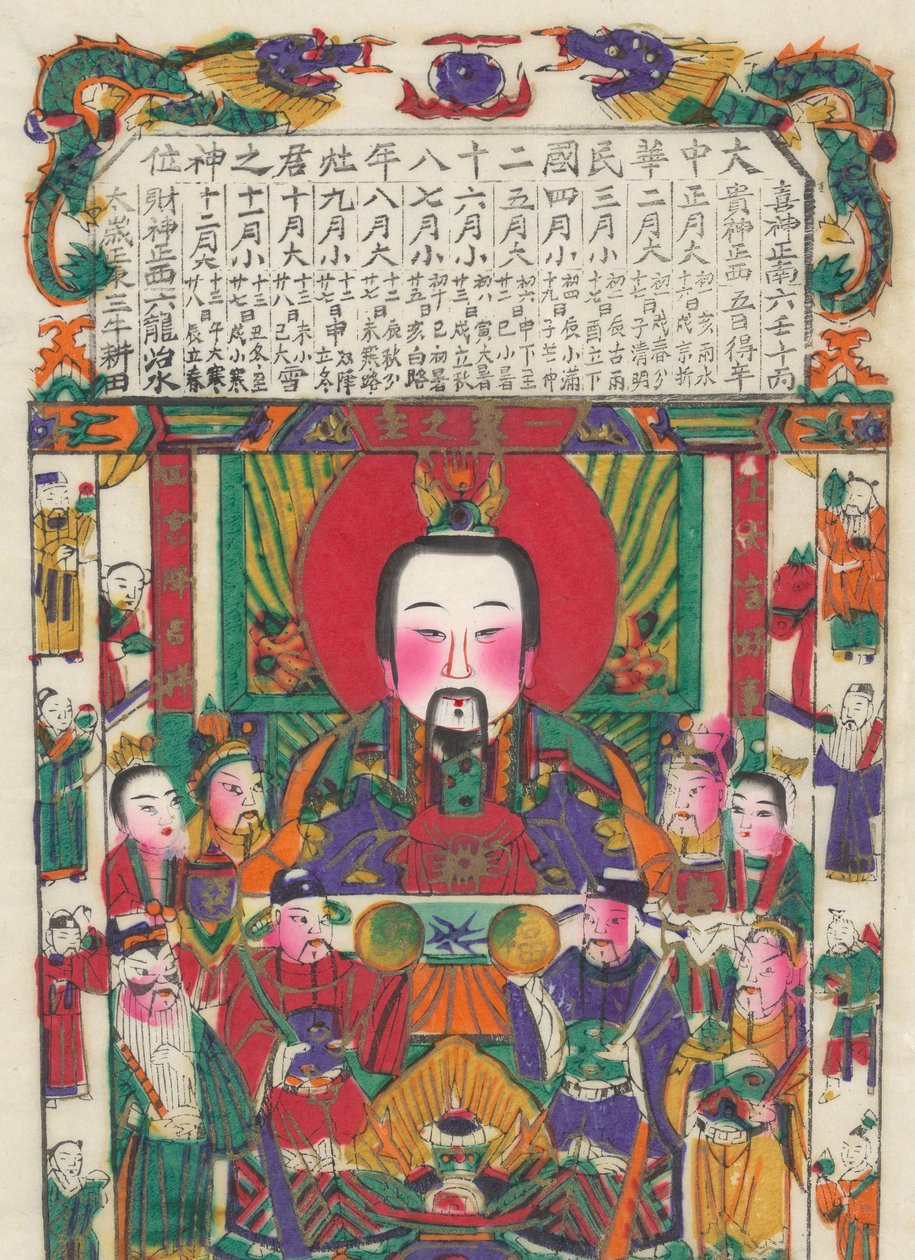 大中華民國二十八年灶君之神位
喜神正南六壬十丙
貴神正西五日得辛
正月大 初一日亥雨水 十六日戌京折
二月大 初一日戌春分 十七日子清明
三月小 初一日辰古雨 十七日酉立下
四月小 初四日辰小滿 十九日子芒仲
五月大 初六日申下至 廿二日巳小暑
六月小 初八日寅大暑 廿三日戌立秋
七月小 初十日巳初暑 廿五日亥白路
八月大 十二日庚秋分 廿七日未寒路
九月小 十二日申双降 廿七日立冬
十月大 十三未小 廿八日巳大雪
十一月小 十三日丑冬 廿七日戌小寒
十二月大 十三日午大寒 廿八日辰立春
財神正西六龍治水
太歲正東三牛耕田
一家之主
上天言好事
回宮降吉祥